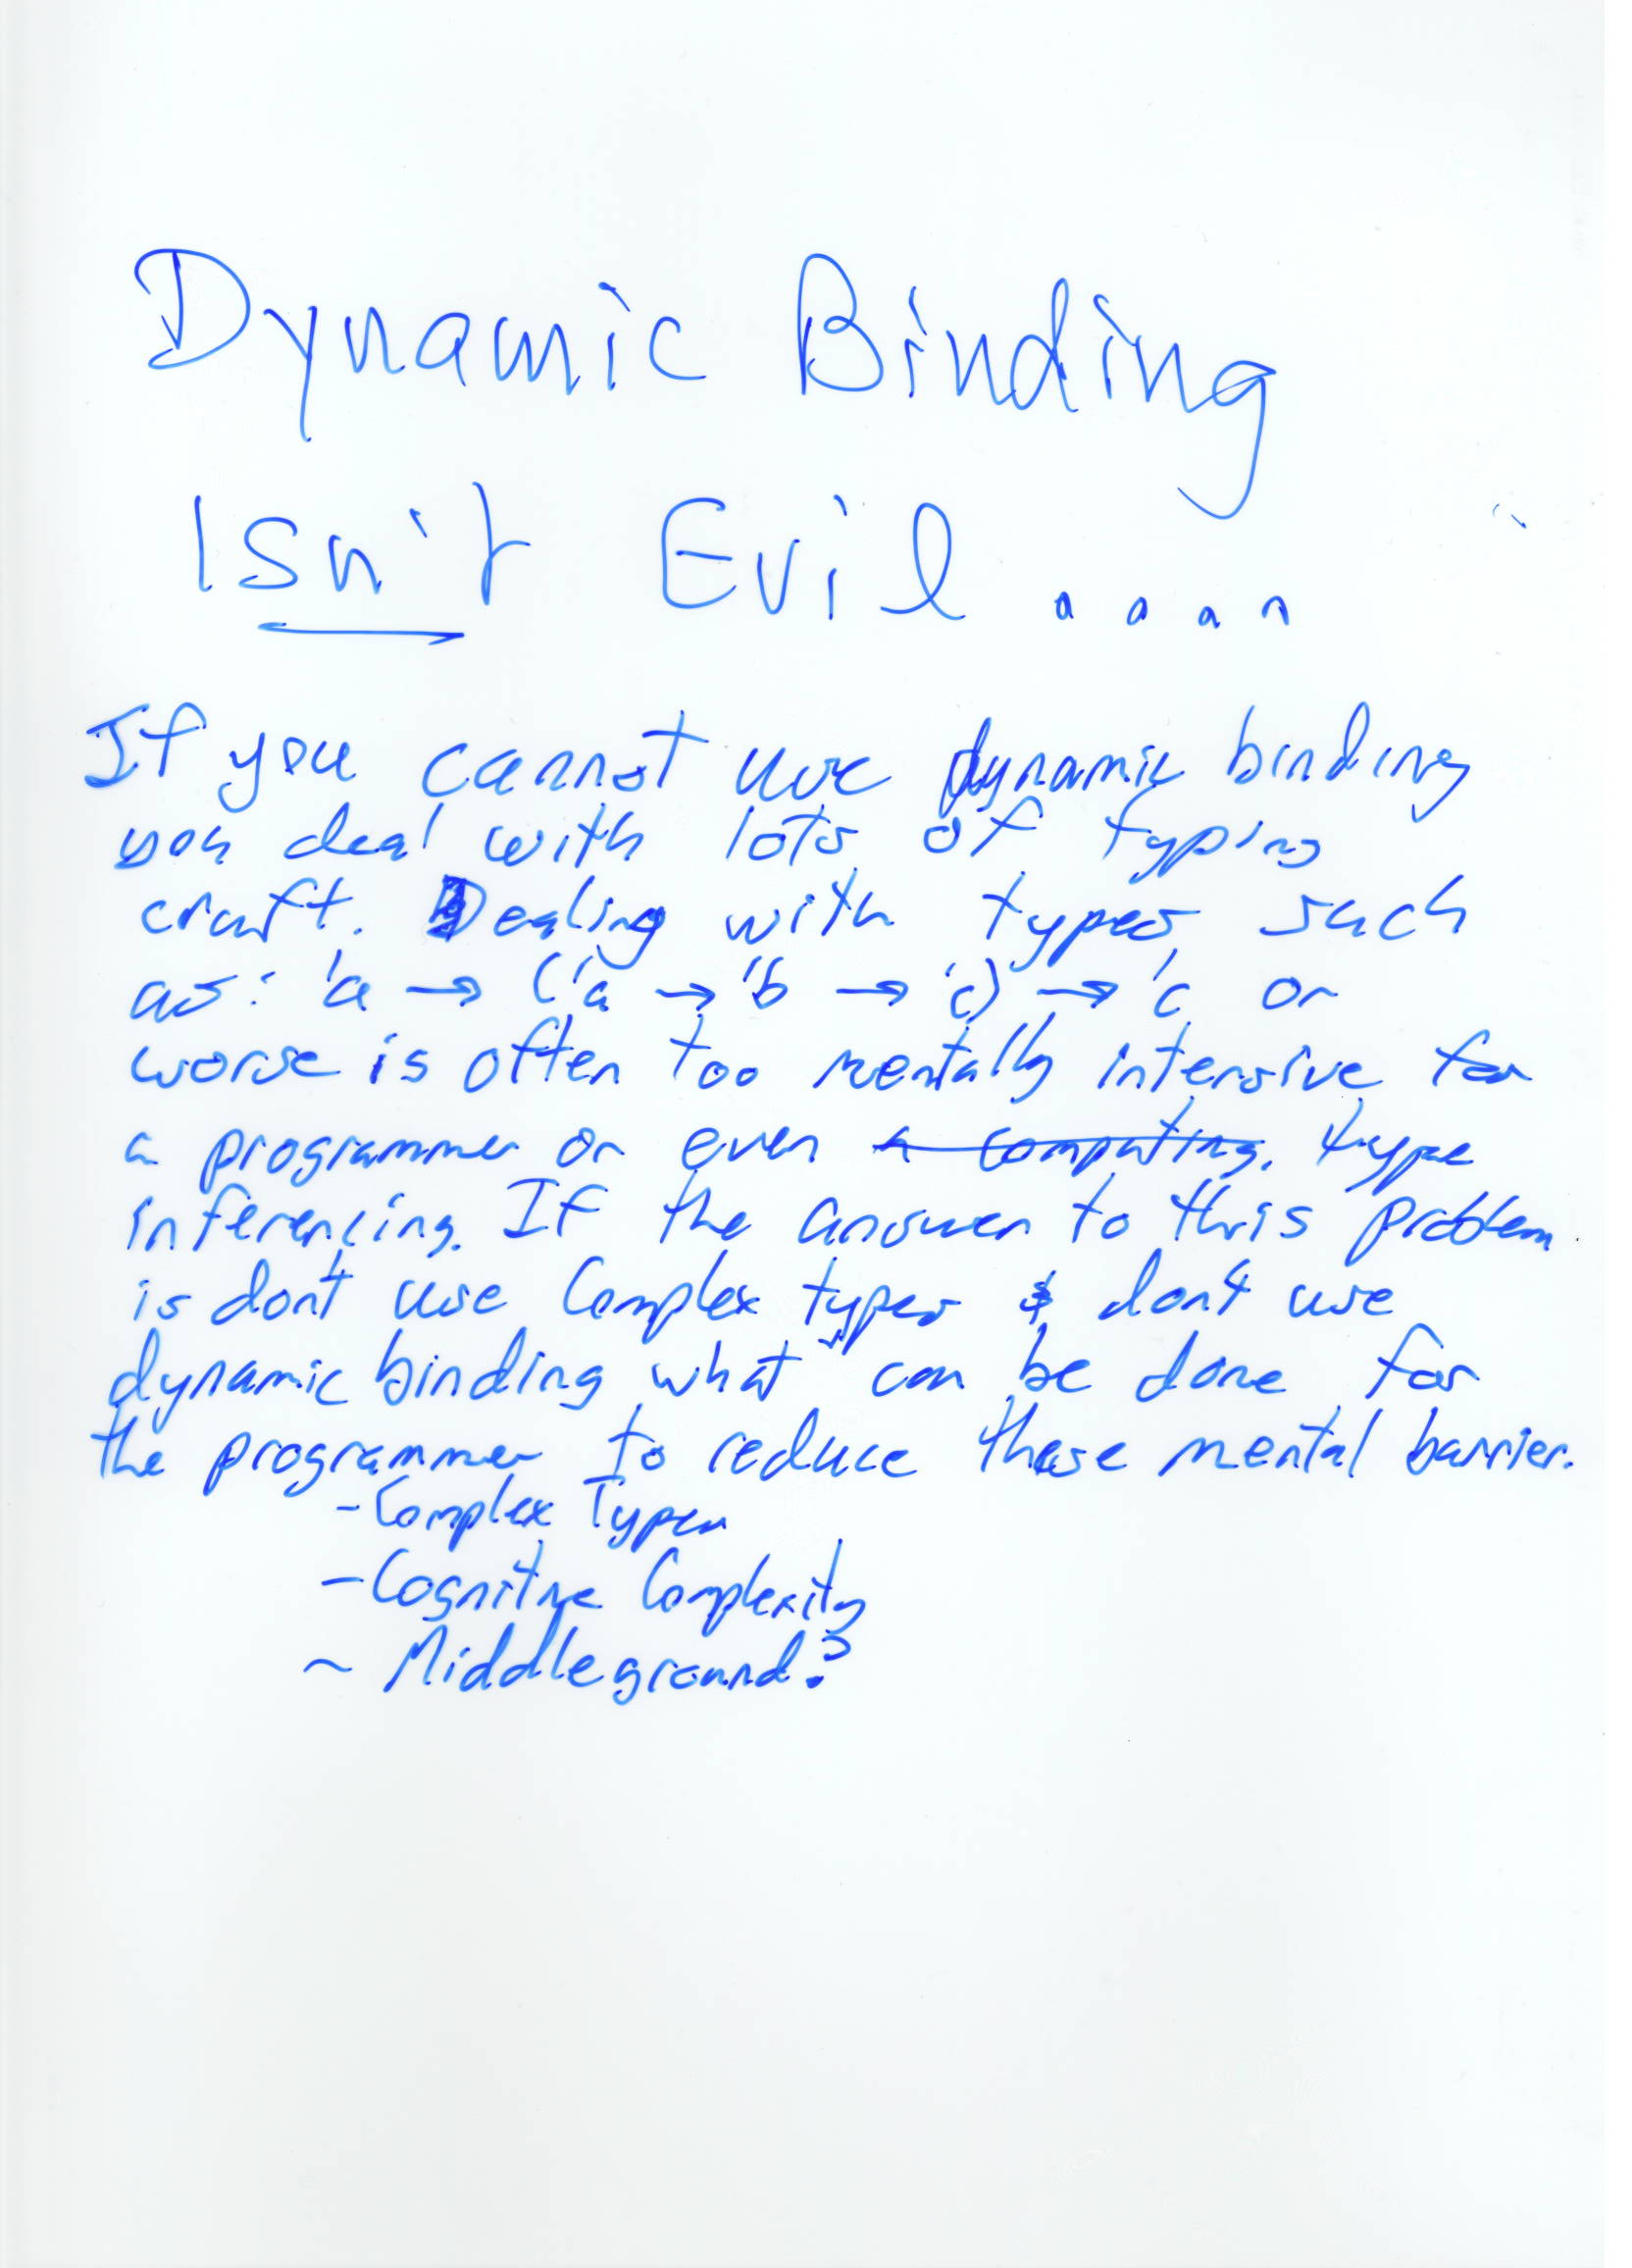 Dynamic Binding
Isn't Evil ....
If you cannot use dynamic binding
you deal with lots of typing
cruft. Dealing with types such
as: 'a → ('a → 'b → 'c) → 'c or
worse is often too mentally intensive for
a programmer or even a computing. type
inferencing. If the answer to this problem
is don't use Complex types & don't use
dynamic binding what can be done for
the programmer to reduce these mental barrier.
- Complex Types
- Cognitive Complexity
~ Middleground?